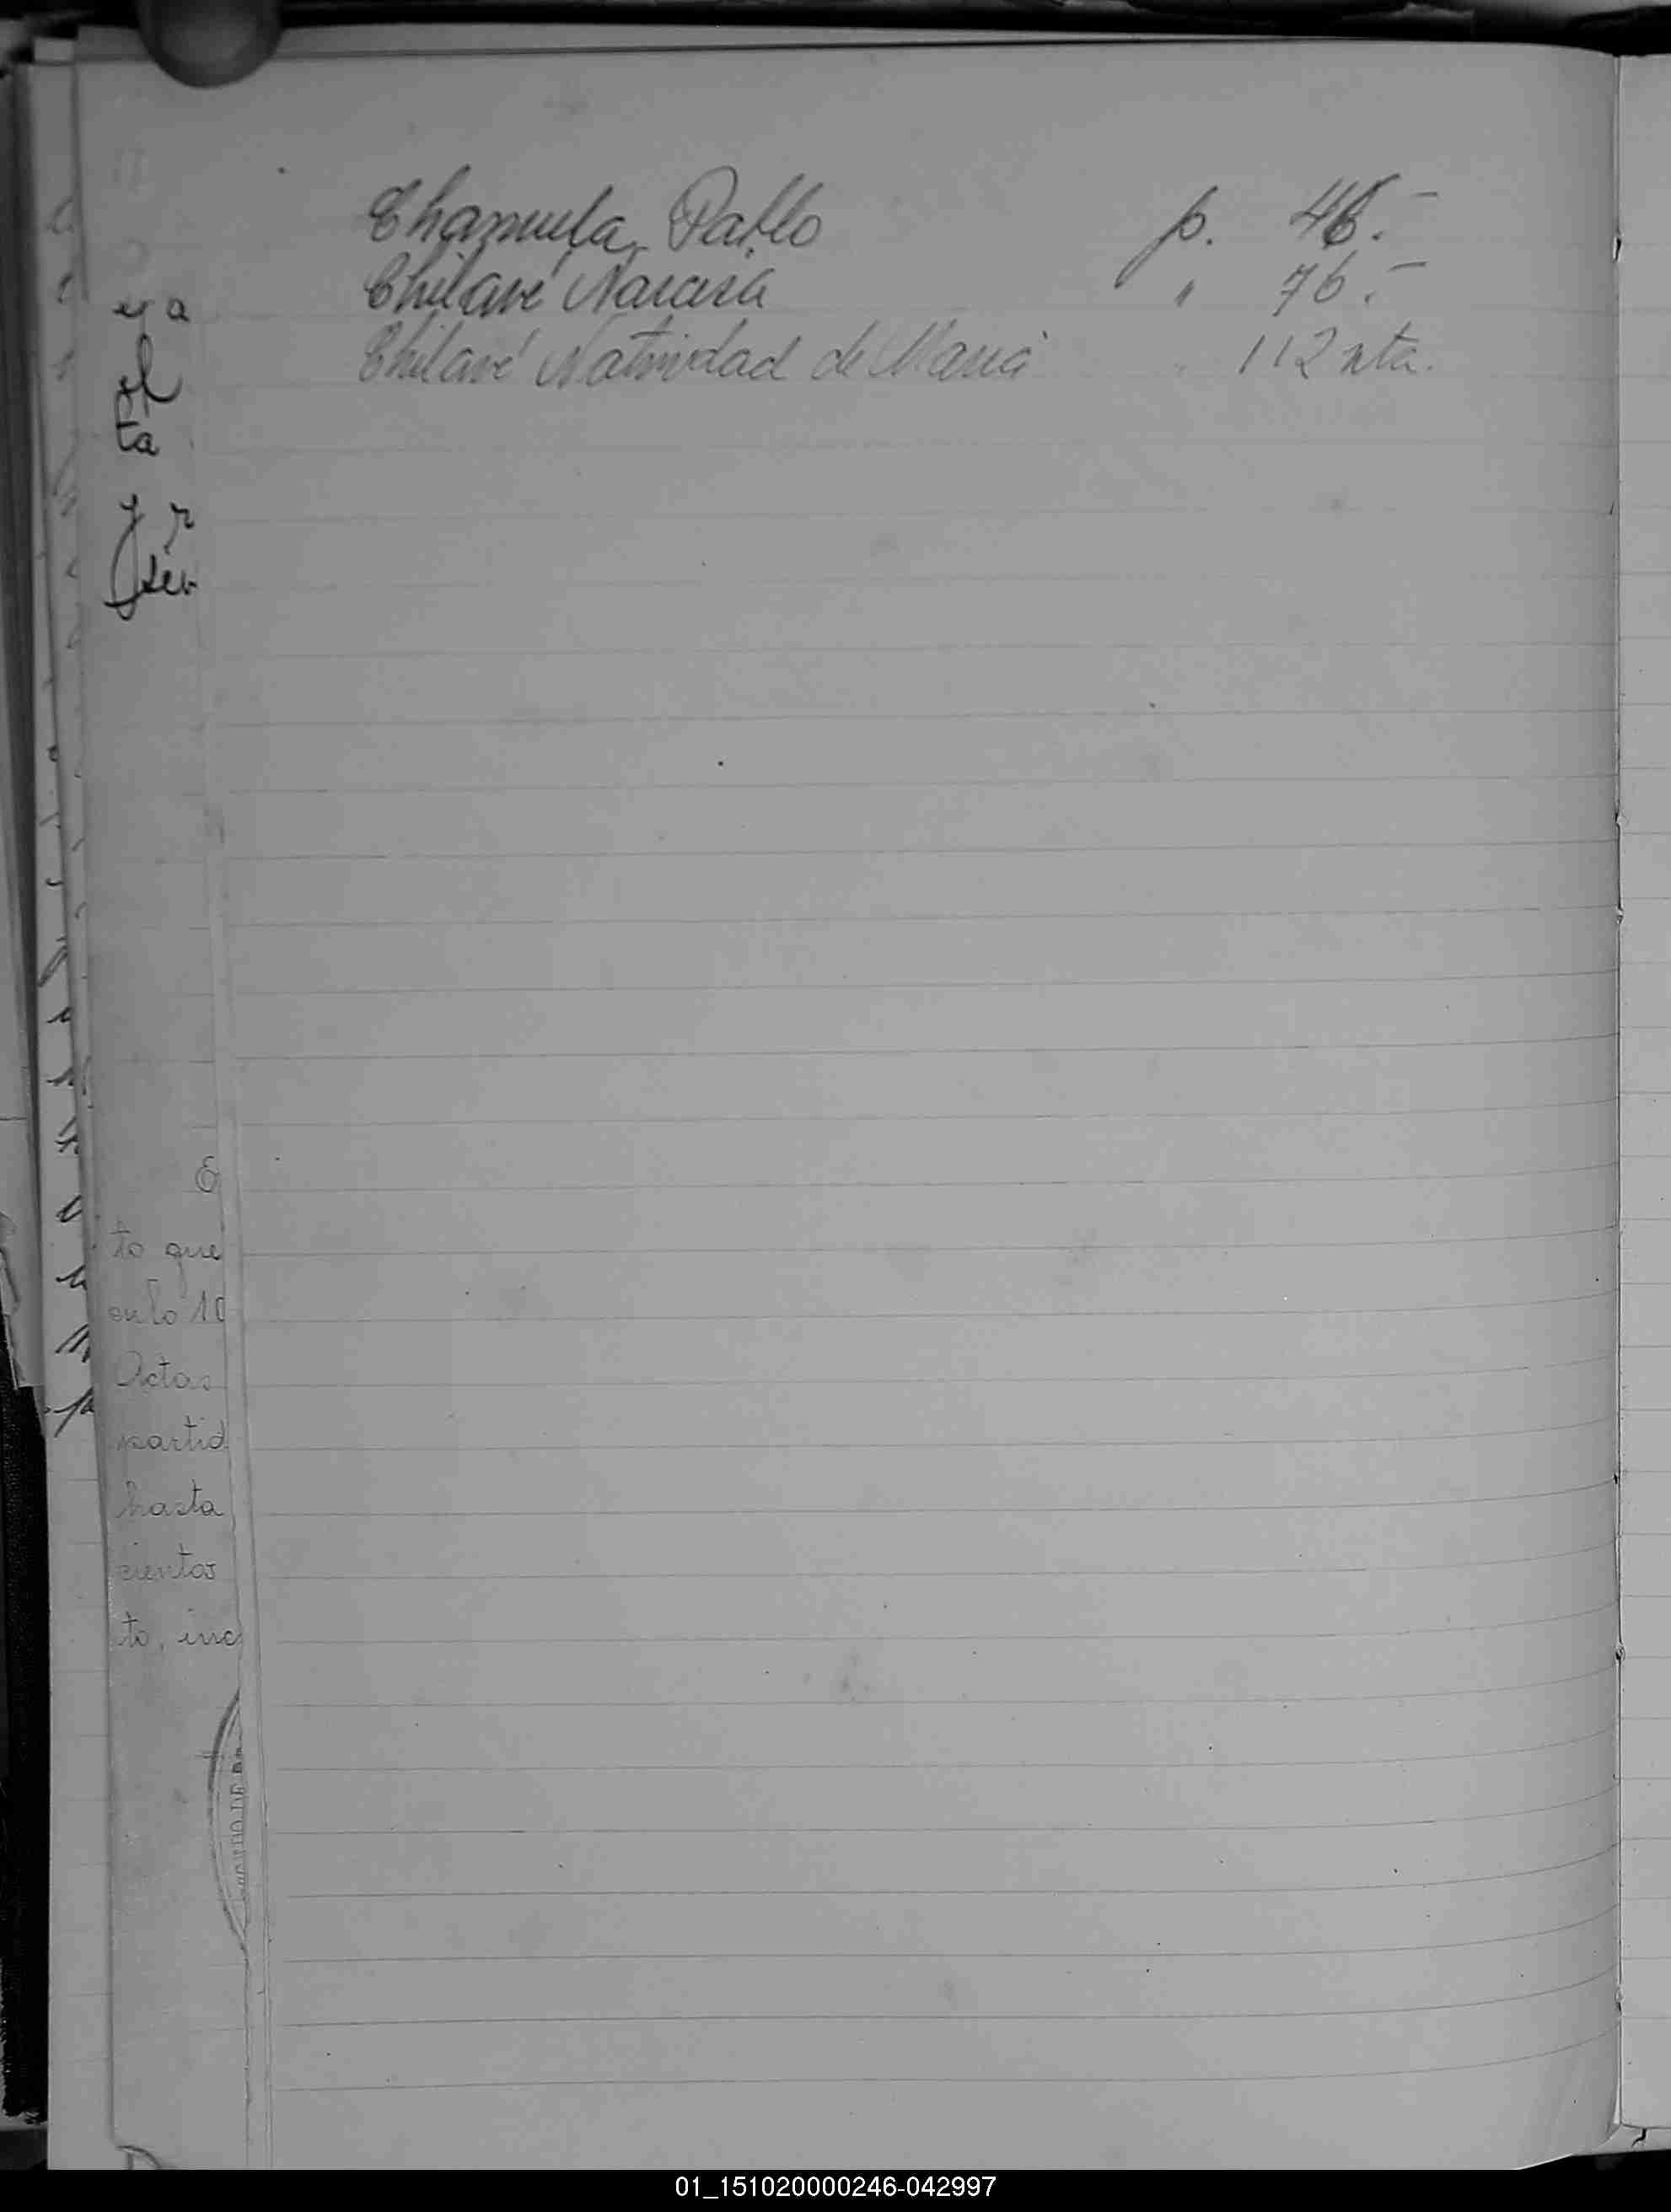 Chamula, Pablo p. 46.-
Chilavé Narcisa " 76.-
Chilavé Natividad de María " 112 vta.
y a
el
ta
y
to que
Actas
partid
hasta
cientos
to, inc
01_151020000246-042997